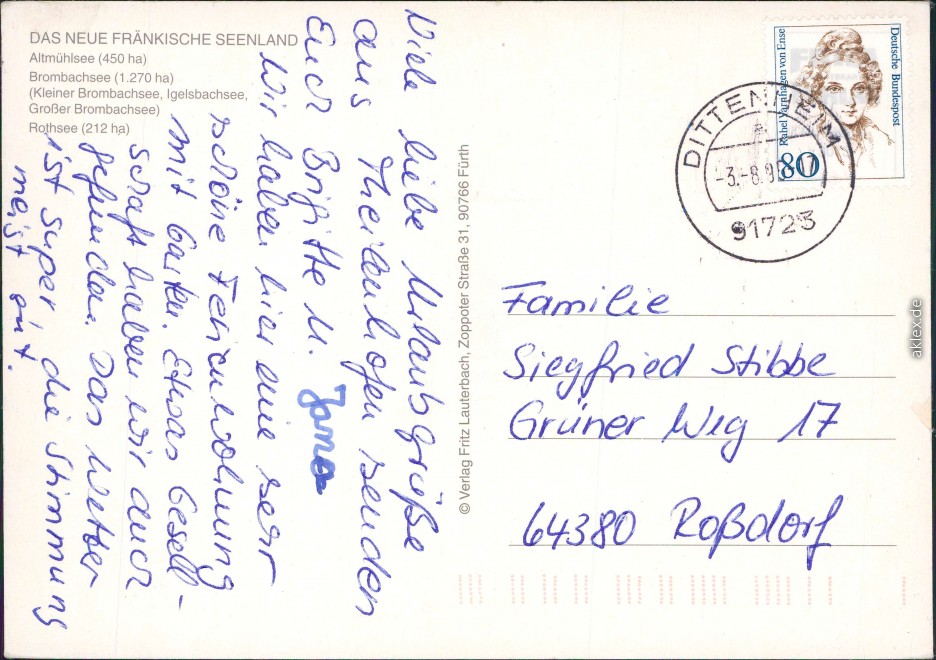 DAS NEUE FRÄNKISCHE SEENLAND
Altmühlsee (450 ha)
Brombachsee (1.270 ha)
(Kleiner Brombachsee, Igelsbachsee,
Großer Brombachsee)
Rothsee (212 ha)
Viele liebe Urlaubsgrüße
aus Theilenhofen senden
Euch Brigitte u. Jana
Wir haben hier eine sehr
schöne Ferienwohnung
mit Garten. Etwas Gesell-
schaft haben wir auch
gefunden. Das Wetter
ist super, die Stimmung
meist gut.
© Verlag Fritz Lauterbach, Zoppoter Straße 31, 90766 Fürth
Deutsche Bundespost
Rahel Varnhagen von Ense
80
DITTENHEIM
91723
Familie
Siegfried Stibbe
Grüner Weg 17
64380 Roßdorf
aklex.de